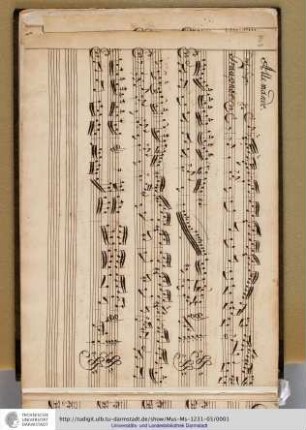 Allemande
http://tudigit.ulb.tu-darmstadt.de/show/Mus-Ms-1231-01/0001
Universitäts- und Landesbibliothek Darmstadt
TECHNISCHE
UNIVERSITÄT
DARMSTADT